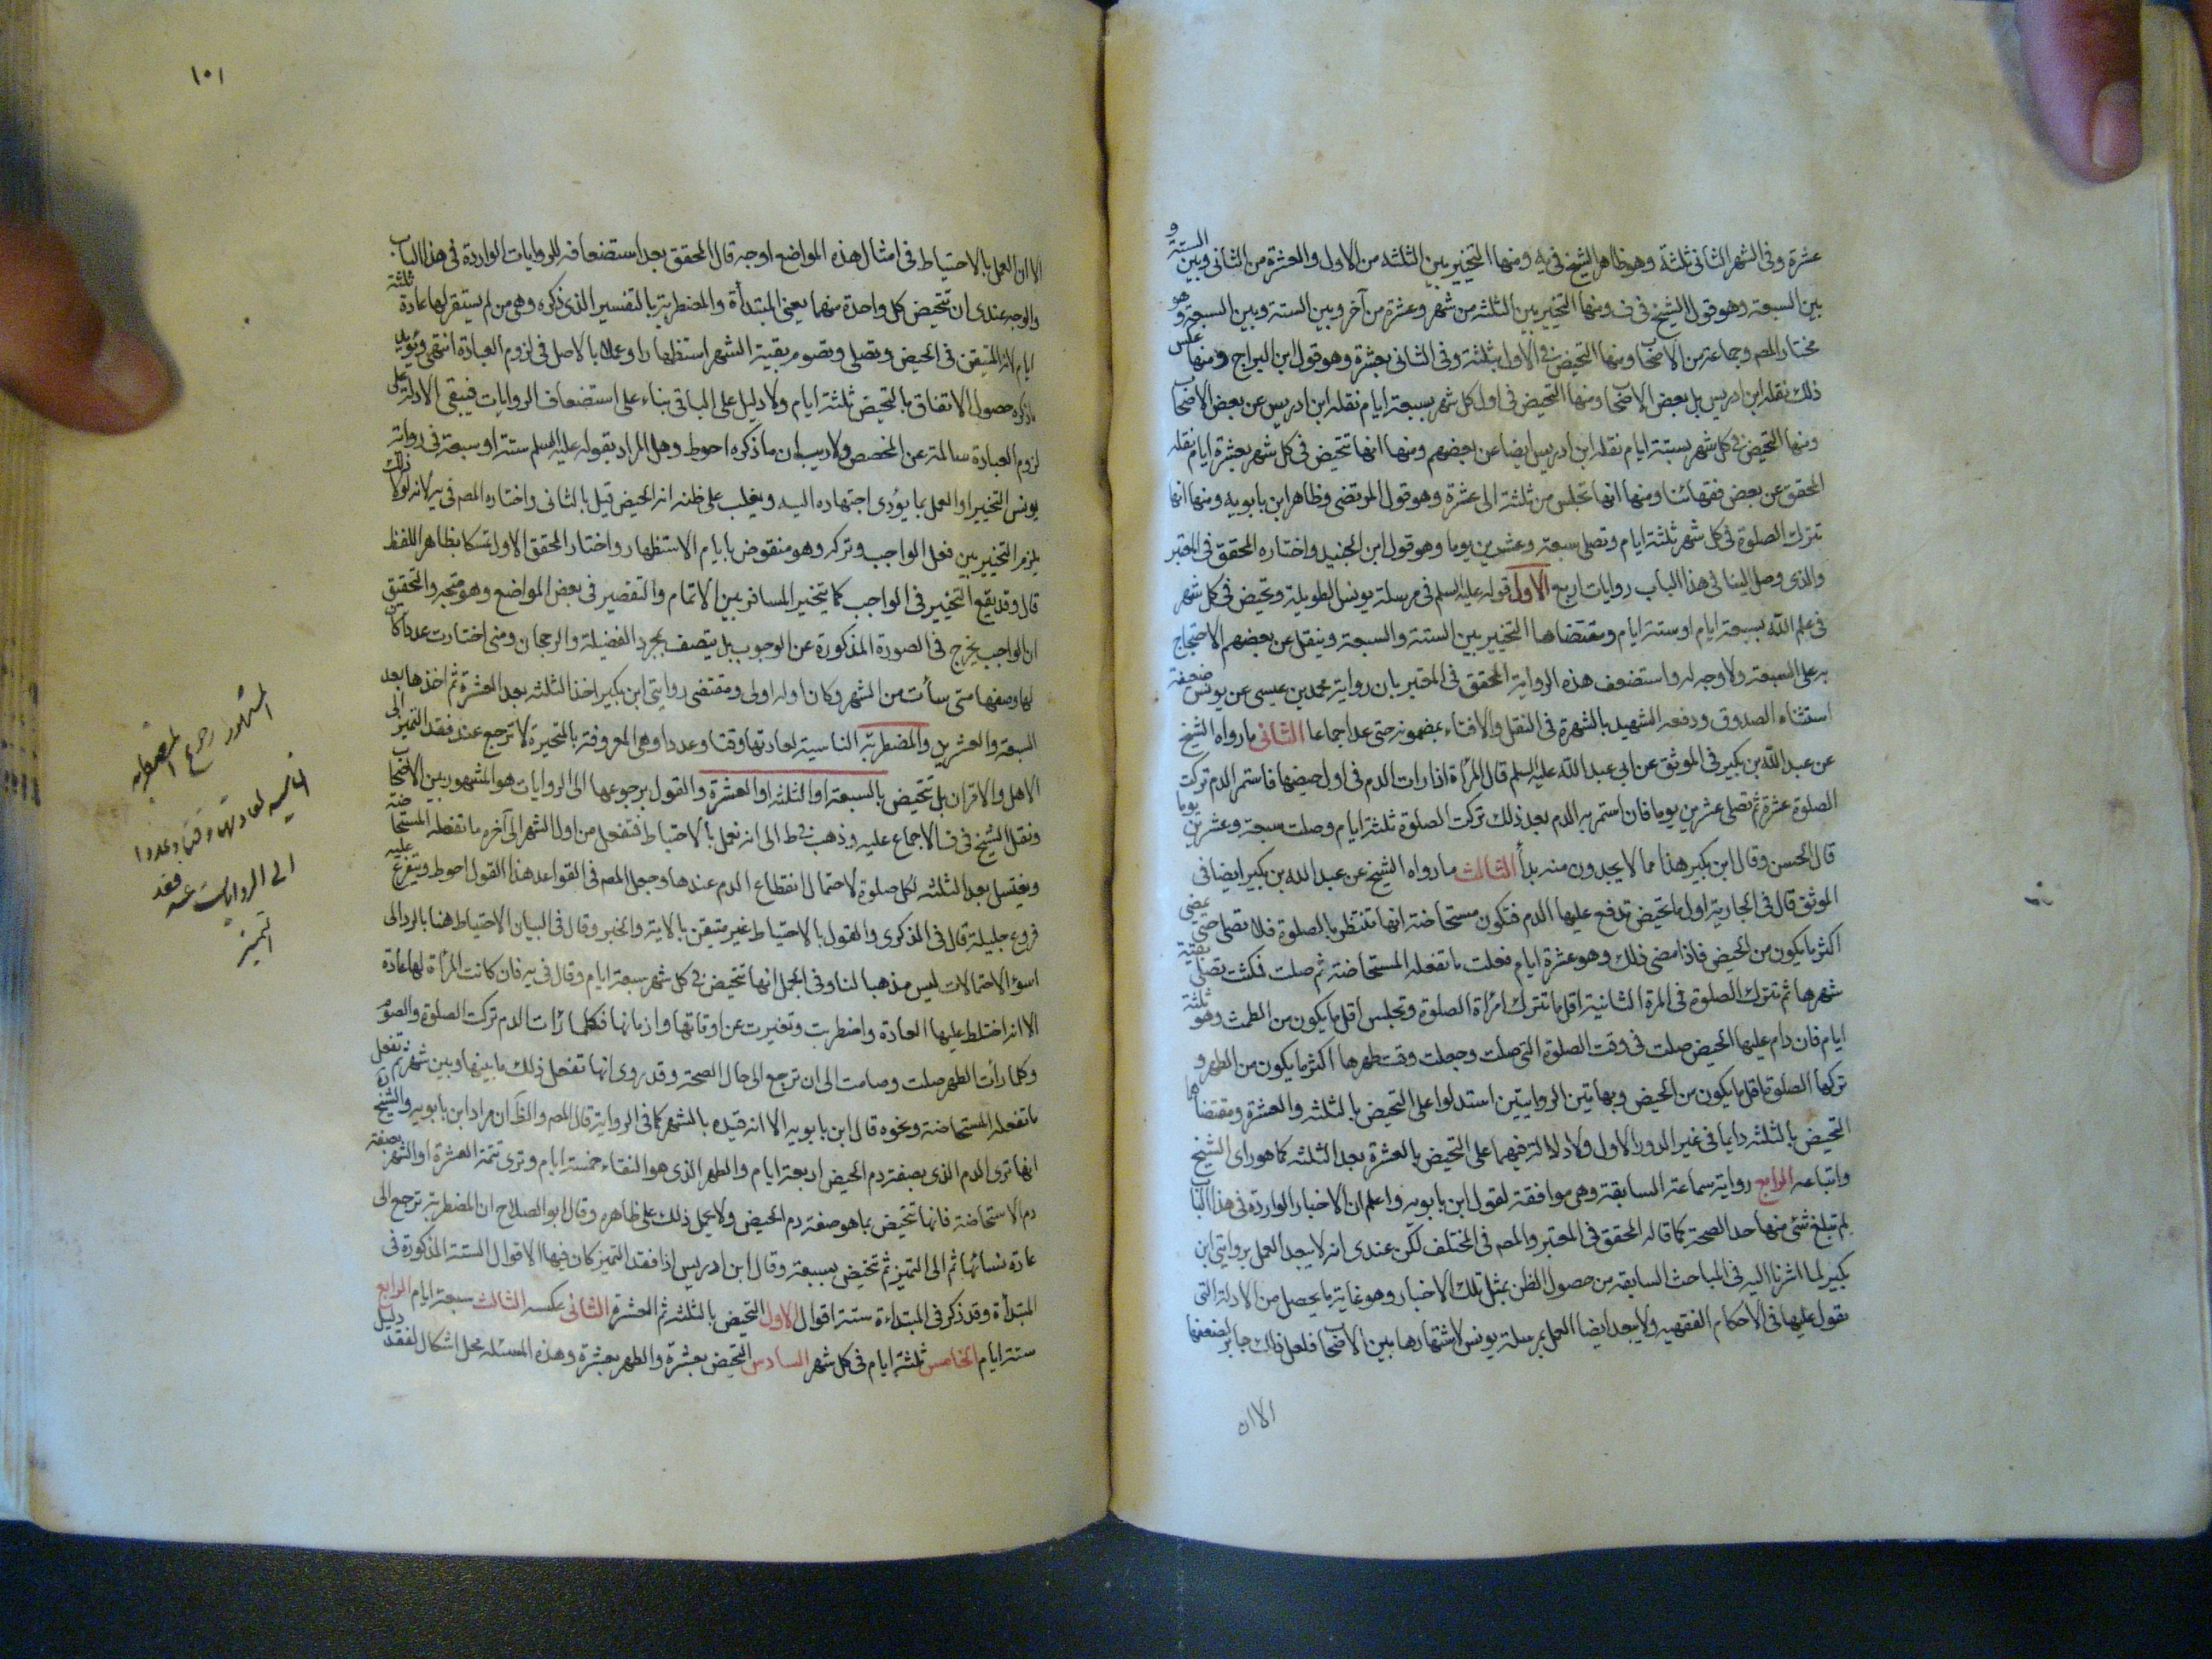 عشرة وفى الشهر الثانى ثلثة وهو ظاهر الشيخ فى يه ومنها التخيير بين الثلثه من الاول والعشرة من الثانى وبين الستة و
بين السبعة وهو قول الشيخ فى ف ومنها التخيير بين الثلثه من شهر وعشرة من آخر وبين الستة وبين السبعة وهو
مختار المص وجماعة من الاصحاب ومنها التحيض فى الاول بثلثة وفى الثانى بعشرة وهو قول ابن البراج ومنها عكس
ذلك نقله ابن ادريس بل بعض الاصحاب ومنها التحيض فى اول كل شهر بسبعة ايام نقله ابن ادريس عن بعض الاصحاب
ومنها التحيض فى كل شهر بستة ايام نقله ابن ادريس ايضا عن بعضهم ومنها انها تتحيض فى كل شهر بعشرة ايام نقله
المحقق عن بعض فقهائنا ومنها انها تجلس من ثلثة الى عشرة وهو قول المرتضى وظاهر ابن بابويه ومنها انها
تترك الصلوة فى كل شهر ثلثة ايام وتصلى سبعة وعشرين يوما وهو قول ابن الجنيد واختاره المحقق فى المعتبر
والذى وصل الينا فى هذا الباب روايات اربع الاول قوله عليه السلم فى مرسلة يونس الطويلة وتحيض فى كل شهر
فى علم الله بسبعة ايام او ستة ايام ومقتضاها التخيير بين الستة والسبعة وينقل عن بعضهم الاحتجاج
به على السبعة ولا وجه له واستضعف هذه الرواية المحقق فى المعتبر بان رواية محمد بن عيسى عن يونس ضعيفة
استثناه الصدوق ودفعه الشهيد بالشهرة فى النقل والافتاء بمضمونه حتى عد اجماعا الثانى ما رواه الشيخ
عن عبد الله بن بكير فى الموثق عن ابى عبد الله عليه السلم قال المرأة اذا رات الدم فى اول حيضها فاستمر الدم تركت
الصلوة عشرة ثم تصلى عشرين يوما فان استمر به الدم بعد ذلك تركت الصلوة ثلثة ايام وصلت سبعة وعشرين يوما
قال الحسن وقال ابن بكير هذا مما لا يجدون منه بدأ الثالث ما رواه الشيخ عن عبد الله بن بكير ايضا فى
الموثق قال فى الجارية اول ما تحيض تدفع عليها الدم فتكون مستحاضة انها تنتظر بالصلوة فلا تصلى حتى يمضى
اكثر ما يكون من الحيض فاذا مضى ذلك وهو عشرة ايام فعلت ما تفعله المستحاضة ثم صلت فمكثت تصلى بقية
شهرها ثم تترك الصلوة فى المرة الثانية اقل ما تترك امرأة الصلوة وتجلس اقل ما يكون من الطمث وهو ثلثة
ايام فان دام عليها الحيض صلت فى وقت الصلوة التى صلت وجعلت وقت طهرها اكثر ما يكون من الطهر و
تركها الصلوة اقل ما يكون من الحيض وبهاتين الروايتين استدلوا على التحيض بالثلثه والعشرة ومقتضاهما
التحيض بالثلثه دايما فى غير الدور الاول ولا دلالة فيهما على التحيض بالعشرة بعد الثلثه كما هو راى الشيخ
واتباعه الرابع رواية سماعة السابقة وهى موافقة لقول ابن بابويه واعلم ان الاخبار الواردة فى هذا الباب
لم تبلغ شئ منها حد الصحة كما قاله المحقق فى المعتبر والمص فى المختلف لكن عندى انه لا يبعد العمل بروايتى ابن
بكير لما اشرنا اليه فى المباحث السابقه من حصول الظن بمثل تلك الاخبار وهو غاية ما يحصل من الادلة التى
نقول عليها فى الاحكام الفقهيه ولا يبعد ايضا العمل بمرسلة يونس لاشتهارها بين الاصحاب فلعل ذلك جابر لضعفها
الا ان
١٠١
الا ان العمل بالاحتياط فى امثال هذه المواضع اوجه قال المحقق بعد استضعافه للروايات الواردة فى هذا الباب
والوجه عندى ان تتحيض كل واحدة منهما يعنى المبتدأة والمضطربة بالتفسير الذى ذكره وهى من لم يستقر لها عادة ثلثة
ايام لانه المتيقن فى الحيض وتصلى وتصوم بقية الشهر استظهارا وعملا بالاصل فى لزوم العبادة انتهى ويؤيد
ما ذكره حصول الاتفاق بالتحيض ثلثة ايام ولا دليل على الباقى بناء على استضعاف الروايات فيبقى الادلة على
لزوم العبادة سالمة عن المخصص ولا ريب ان ما ذكره احوط وهل المراد بقوله عليه السلم ستة او سبعة فى رواية
يونس التخيير او العمل بما يؤدى اجتهاده اليه ويغلب على ظنه انه الحيض قيل بالثانى واختاره المص فى يه لانه لولا ذلك
يلزم التخيير بين فعل الواجب وتركه وهو منقوض بايام الاستظهار واختار المحقق الاول تمسكا بظاهر اللفظ
قال وقد يقع التخيير فى الواجب كما يتخير المسافر بين الاتمام والتقصير فى بعض المواضع وهو متجه والتحقيق
ان الواجب يخرج فى الصورة المذكورة عن الوجوب بل يتصف بمجرد الفضيلة والرجحان ومتى اختارت عددا كان
لها وضعها متى شأت من الشهر وكان اوله اولى ومقتضى روايتى ابن بكير اخذ الثلثه بعد العشرة ثم اخذها بعد
السبعة والعشرين والمضطربة الناسية لعادتها وقتا وعددا وهى المعروفة بالمتحيرة لا ترجع عند فقد التميز الى
الاهل والاقران بل تتحيض بالسبعة او الثلثه او العشرة والقول برجوعها الى الروايات هو المشهور بين الاصحاب
ونقل الشيخ فى ف الاجماع عليه وذهب فى ط الى انه تعمل بالاحتياط فتفعل من اول الشهر الى آخره ما تفعله المستحاضة
وتغتسل بعد الثلثه لكل صلوة لاحتمال انقطاع الدم عندها وجعل المص فى القواعد هذا القول احوط ويتفرع عليه
فروع جليلة قال فى الذكرى والقول بالاحتياط غير متيقن بالاية والخبر وقال فى البيان الاحتياط هنا بالرد الى
اسؤ الاحتمالات ليس مذهبا لنا وفى الجمل انها تتحيض فى كل شهر سبعة ايام وقال فى يه فان كانت المرأة لها عادة
الا انه اختلط عليها العادة واضطربت وتغيرت عن اوقاتها وازمانها فكلما رأت الدم تركت الصلوة والصوم
وكلما رأت الطهر صلت وصامت الى ان ترجع الى حال الصحة وقد روى انها تفعل ذلك ما بينها وبين شهر ثم تفعل
ما تفعله المستحاضة ونحوه قال ابن بابويه الا انه قيده بالشهر كما فى الرواية قال المص والظ ان مراد ابن بابويه والشيخ ره
انها ترى الدم الذى بصفة دم الحيض اربعة ايام والطهر الذى هو النقاء خمسة ايام وترى تتمة العشرة او الشهر بصفة
دم الاستحاضة فانها تتحيض بما هو صفة دم الحيض ولا يحمل ذلك على ظاهره وقال ابو الصلاح ان المضطربة ترجع الى
عادة نسائها ثم الى التميز ثم تتحيض بسبعة وقال ابن ادريس اذا فقد التميز كان فيها الاقوال الستة المذكورة فى
المبتدأة وقد ذكر فى المبتداءة ستة اقوال الاول التحيض بالثلثه ثم العشرة الثانى عكسه الثالث سبعة ايام الرابع
ستة ايام الخامس ثلثة ايام فى كل شهر السادس التحيض بعشرة والطهر بعشرة وهذه المسئله محل اشكال لفقد دليل
المشهور رجوع المضطربه
الناسيه لعادتها وقتا وعددا
الى الروايات عند فقد
التميز